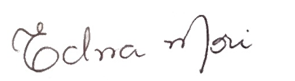 Edna Mori